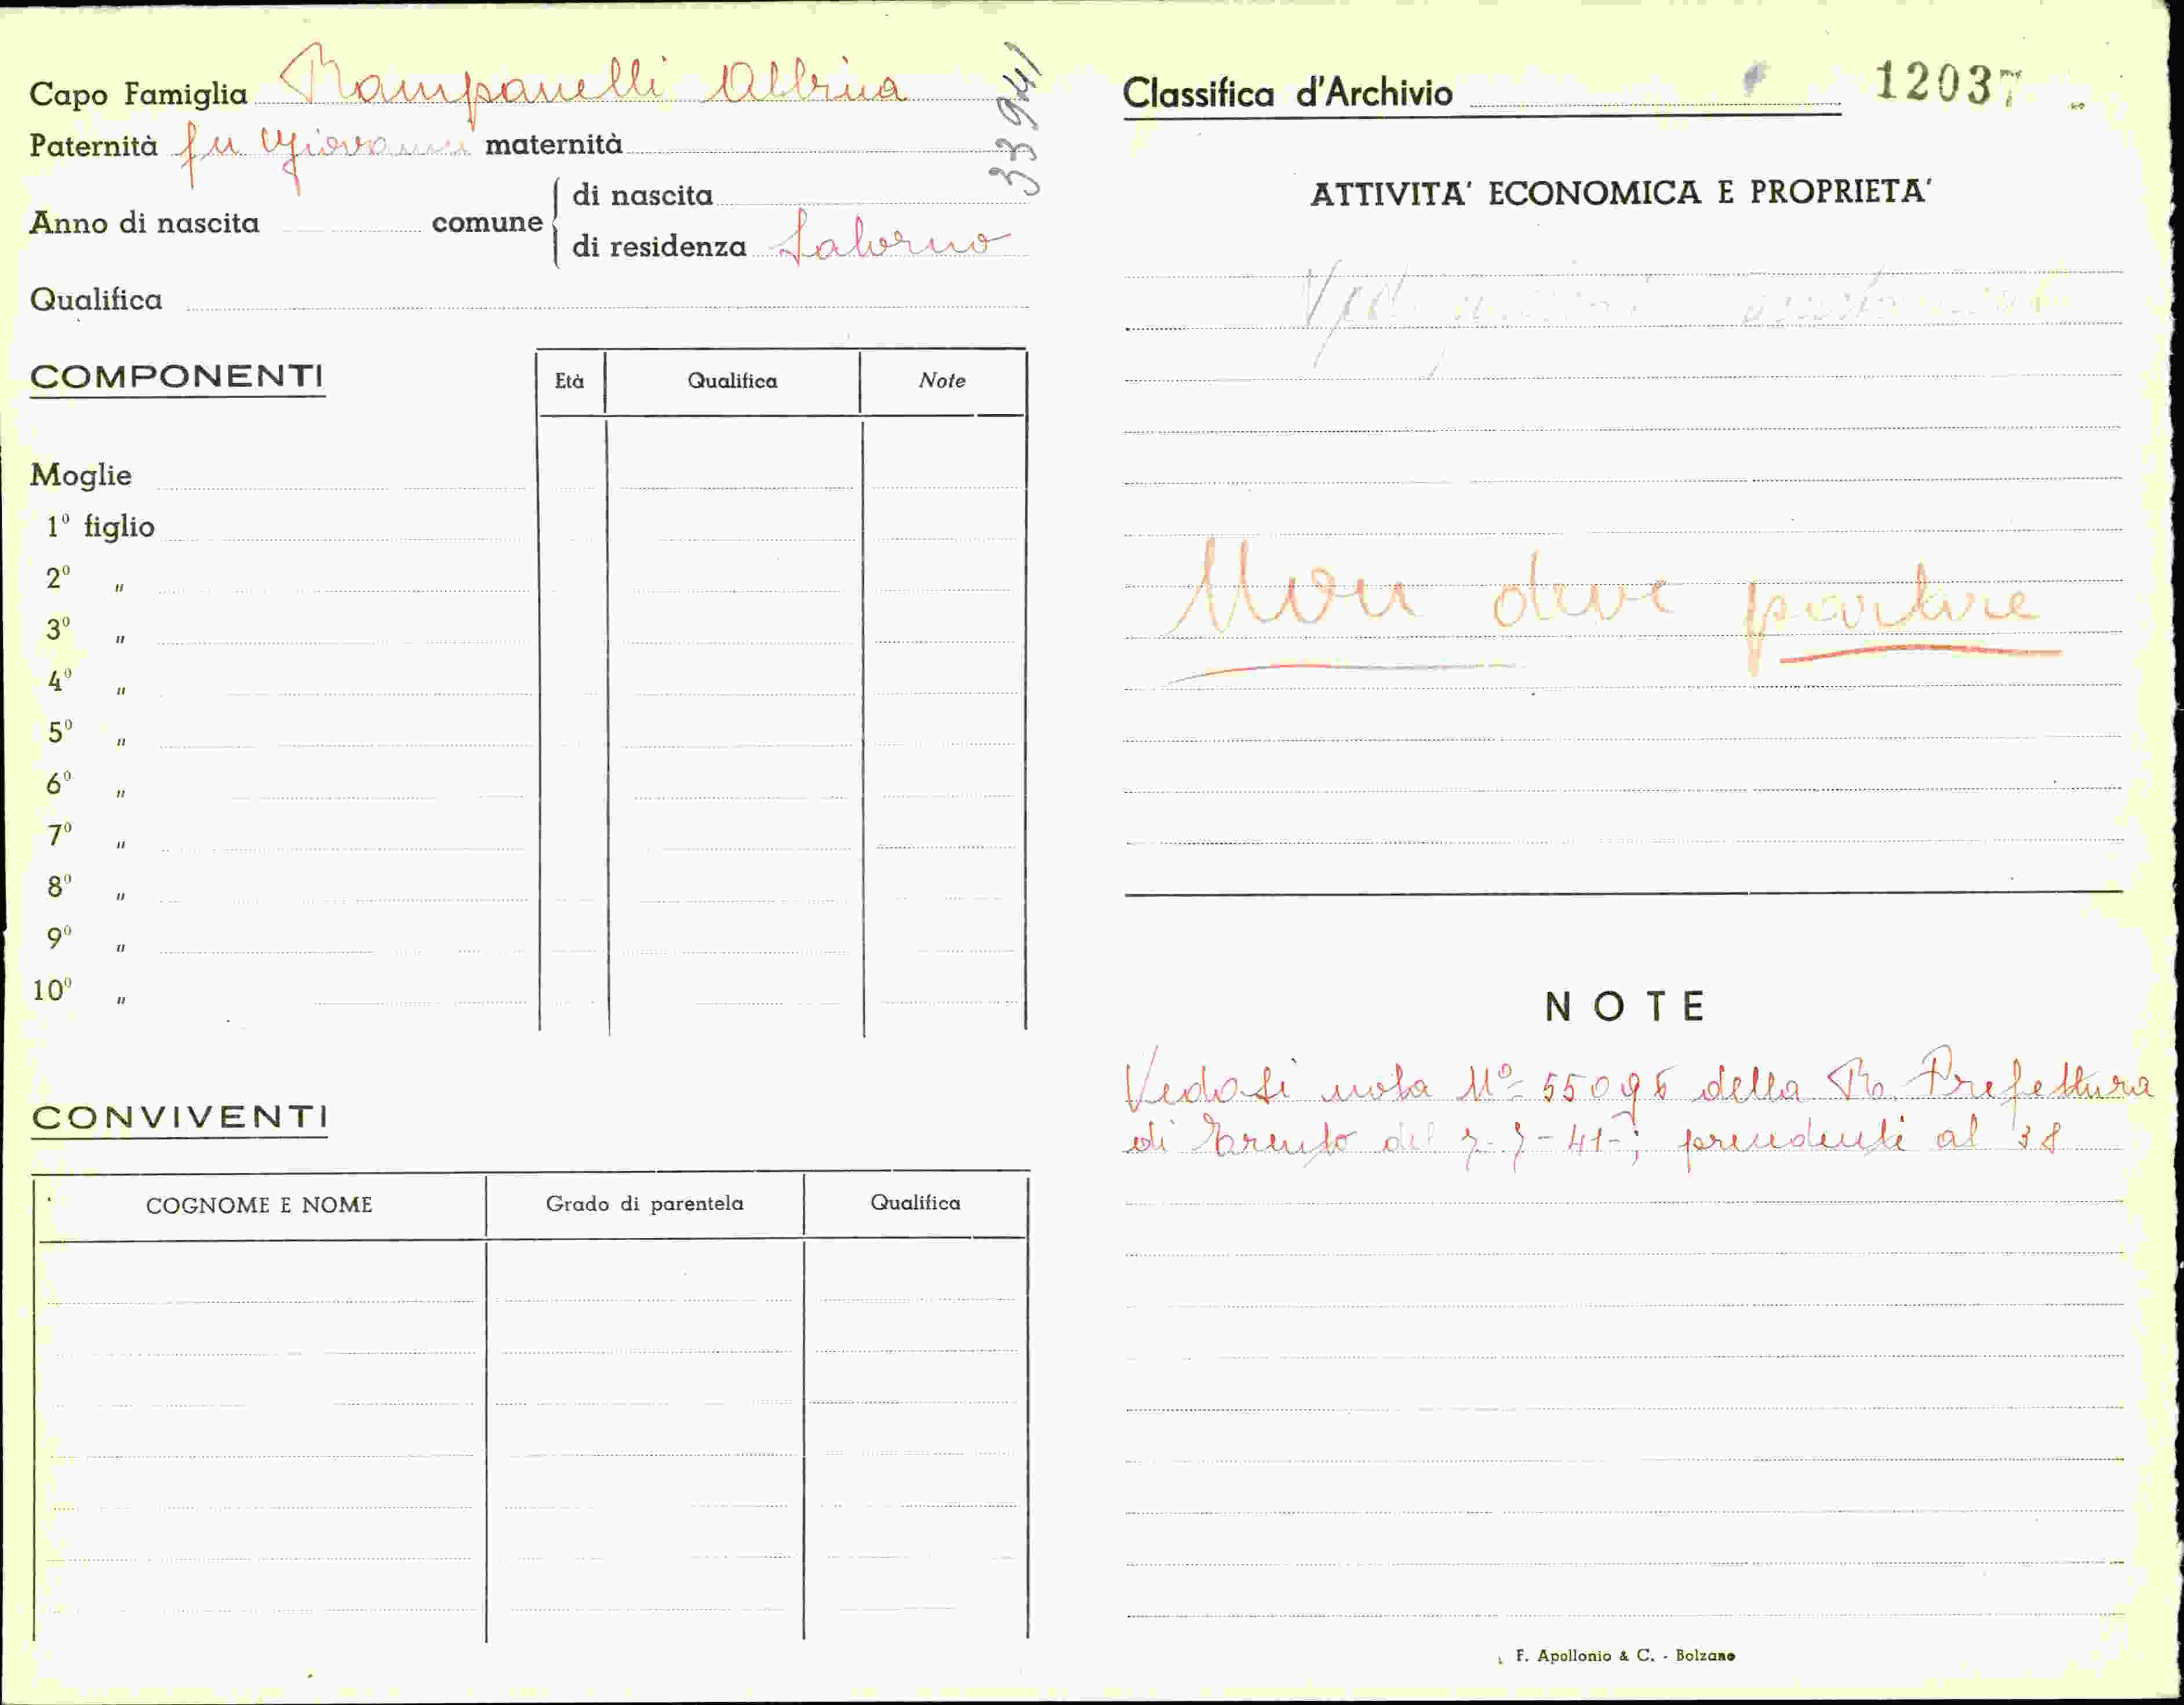 Capo Famiglia Rampanelli Albina
Paternità fu Giovanni maternità
339941
Anno di nascita comune di nascita
di residenza Salorno
Qualifica
COMPONENTI Età Qualifica Note
Moglie
1º figlio
2º "
3º "
4º "
5º "
6º "
7º "
8º "
9º "
10º "
CONVIVENTI
COGNOME E NOME Grado di parentela Qualifica
Classifica d'Archivio 12037
ATTIVITA' ECONOMICA E PROPRIETA'
Non deve partire
NOTE
Vedasi nota Nº 55096 della R. Prefettura
di Trento del 7-7-41-; precedenti al 38
F. Apollonio & C. - Bolzano